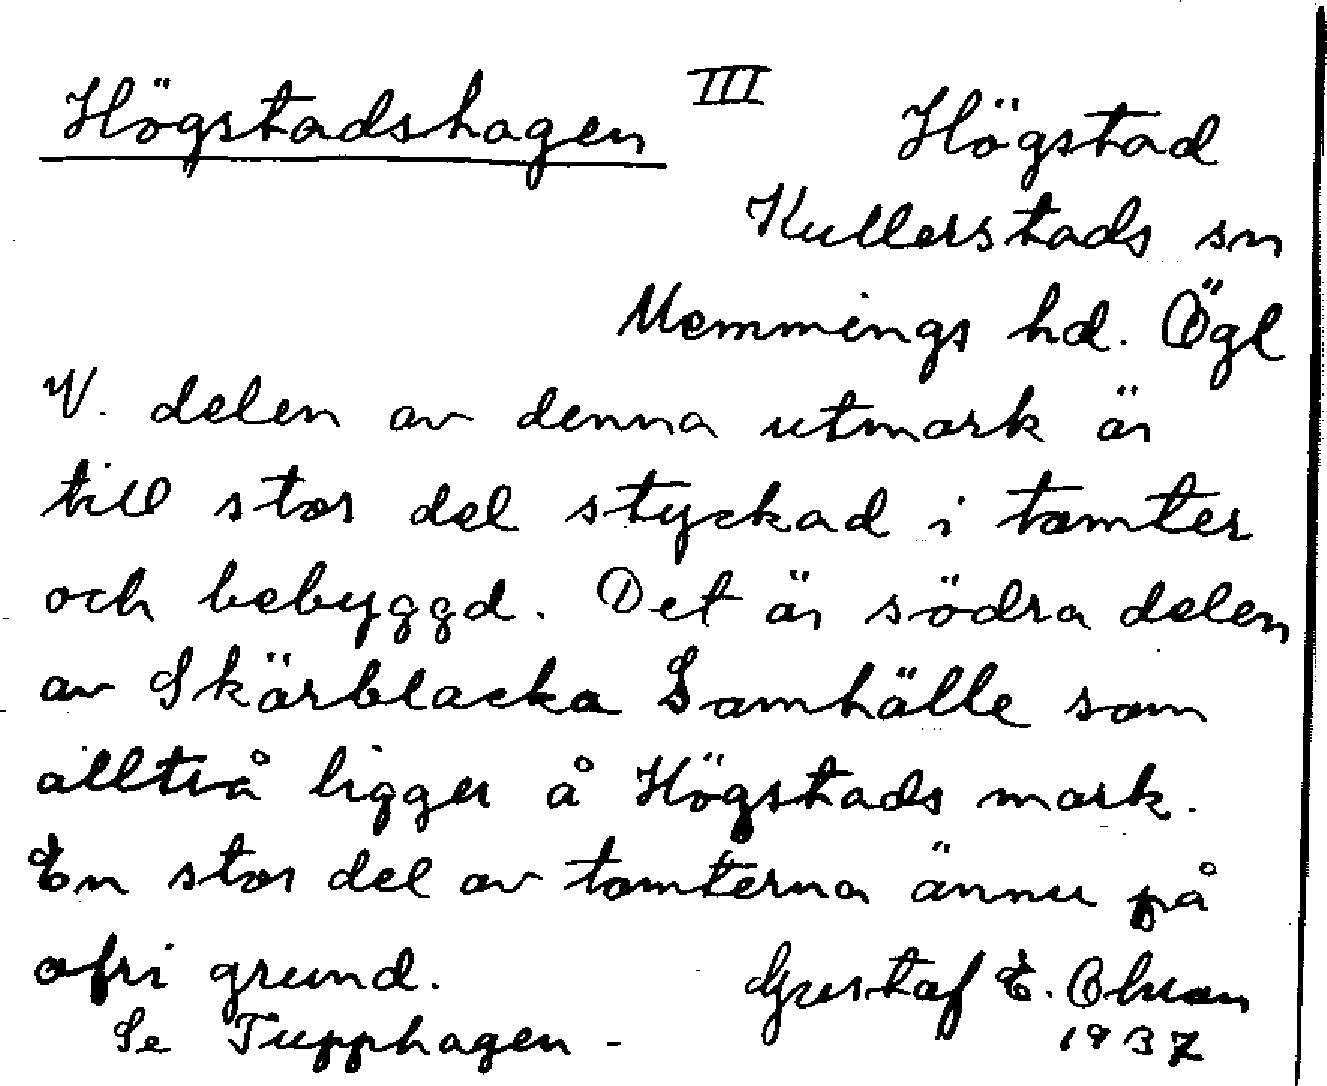 Högstadshagen III Högstad
Kullerstads sn
Memmings hd. Ögl
V. delen av denna utmark är
till stor del styckad i tomter
och bebyggd. Det är södra delen
av Skärblacka Samhälle som
alltså ligger å Högstads mark.
En stor del av tomterna ännu på
ofri grund.
Gustaf E. Ohman
Se Tupphagen - 1937